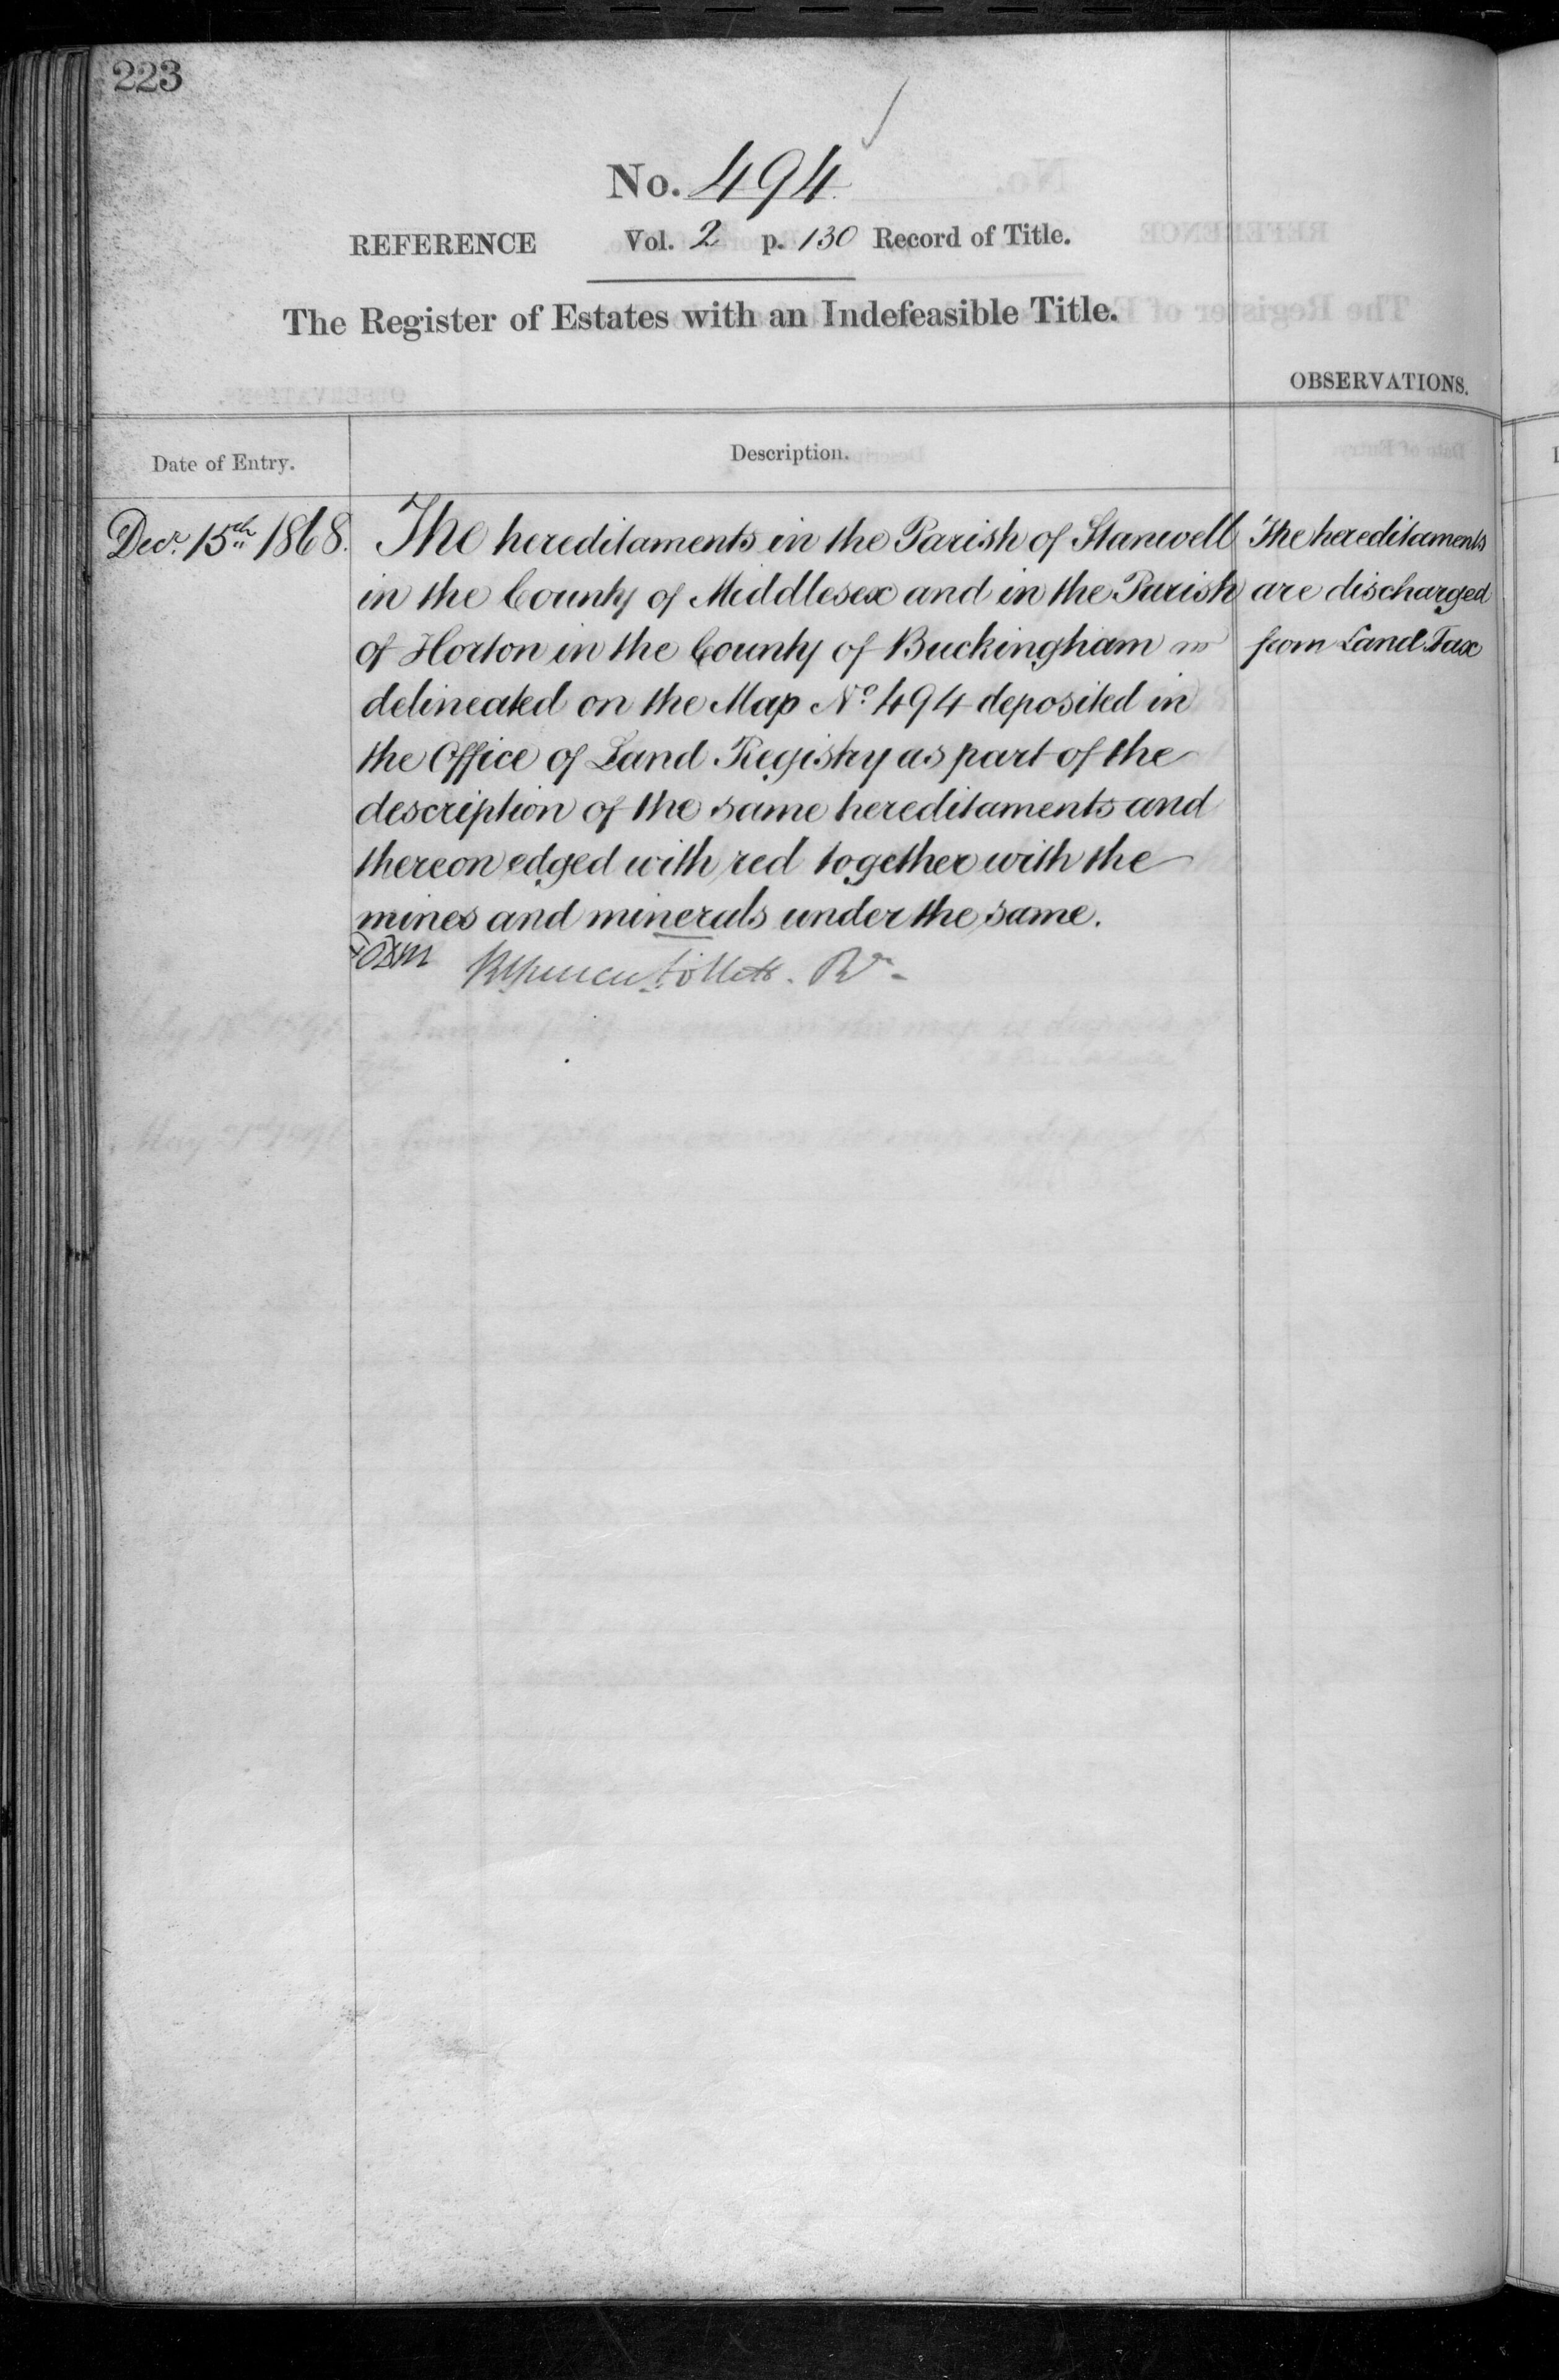 223
No. 494
REFERENCE Vol. 2 p. 130 Record of Title.
The Register of Estates with an Indefeasible Title.
OBSERVATIONS.
Date of Entry.
Description.
Decr. 15th 1868.
The hereditaments in the Parish of Stanwell
in the County of Middlesex and in the Parish
of Horton in the County of Buckingham
delineated on the Map No. 494 deposited in
the Office of Land Registry as part of the
description of the same hereditaments and
thereon edged with red together with the
mines and minerals under the same.
Follett. Rr.
The hereditaments
are discharged
from Land Tax